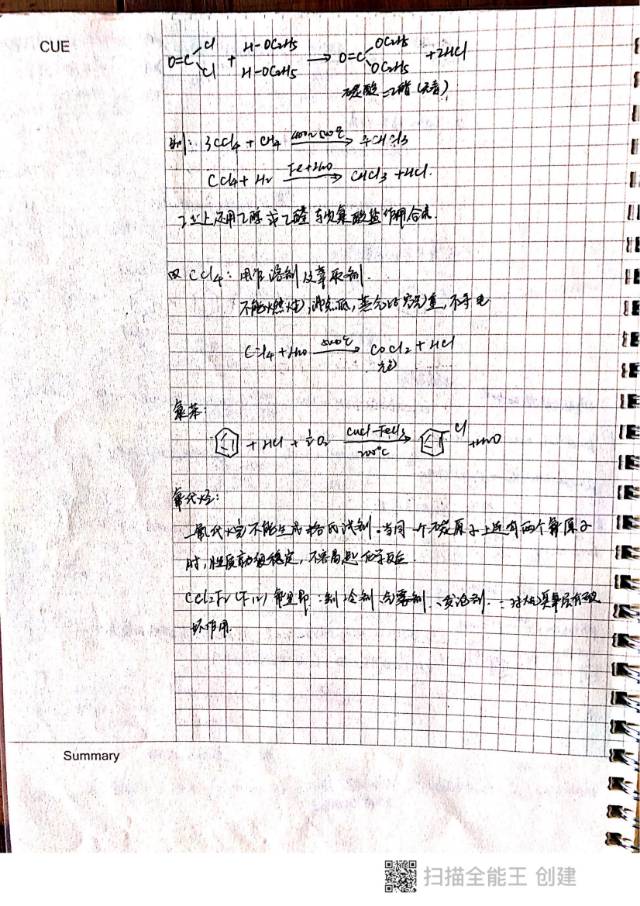 CUE
O=C Cl Cl + H-OC2H5 H-OC2H5 → O=C OC2H5 OC2H5 +2HCl
碳酸二乙酯(无毒)
制: 3CCl4 + CH4 400~500℃ → 4CHCl3
CCl4 + H2 Fe+H2O → CHCl3 + HCl.
工业上还用乙醇或乙醛与次氯酸盐作用合成.
CCl4: 用作溶剂及萃取剂.
不能燃烧, 沸点低, 蒸气比空气重, 不导电
CCl4 + H2O 500℃ → COCl2 + HCl
氯苯:
+ HCl + ½O2 CuCl-FeCl3 → 200℃ Cl +H2O
氟代烃:
一氟代烃不能 当同一个碳原子上连有两个氟原子
时, 性质 稳定, 不容易起化学反应.
CCl2F2 (F12) 氟里昂: 制冷剂 气雾剂、发泡剂 对大气臭氧层有破
坏作用.
Summary
扫描全能王 创建